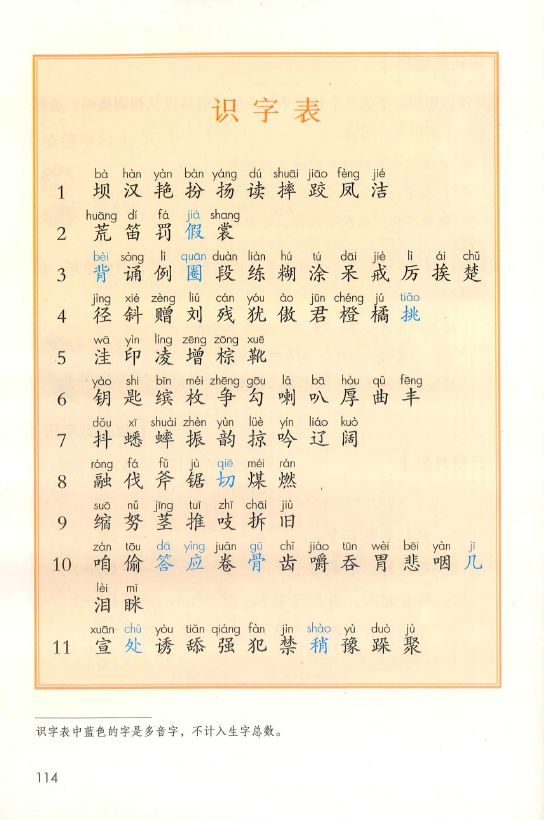 识字表
bà hàn yàn bàn yáng dú shuāi jiāo fèng jié
1 坝 汉 艳 扮 扬 读 摔 跤 凤 洁
huāng dí fá jià shang
2 荒 笛 罚 假 裳
bèi sòng lì quān duàn liàn hú tú dāi jiè lì ái chǔ
3 背 诵 例 圈 段 练 糊 涂 呆 戒 厉 挨 楚
jìng xié zèng liú cán yóu ào jūn chéng jú tiāo
4 径 斜 赠 刘 残 犹 傲 君 橙 橘 挑
wā yìn líng zēng zōng xuē
5 洼 印 凌 增 棕 靴
yào shi bīn méi zhēng gōu lǎ bā hòu qǔ fēng
6 钥 匙 缤 枚 争 勾 喇 叭 厚 曲 丰
dǒu xī shuài zhèn yùn lüè yín liáo kuò
7 抖 蟋 蟀 振 韵 掠 吟 辽 阔
róng fá fǔ jù qiē méi rán
8 融 伐 斧 锯 切 煤 燃
suō nǔ jīng tuī zhī chāi jiù
9 缩 努 茎 推 吱 拆 旧
zán tōu dā yìng juǎn gū chǐ jiáo tūn wèi bēi yàn jī
10 咱 偷 答 应 卷 骨 齿 嚼 吞 胃 悲 咽 几
lèi mī
泪 眯
xuān chǔ yòu tiǎn qiáng fàn jìn shāo yù duò jù
11 宣 处 诱 舔 强 犯 禁 稍 豫 跺 聚
识字表中蓝色的字是多音字，不计入生字总数。
114